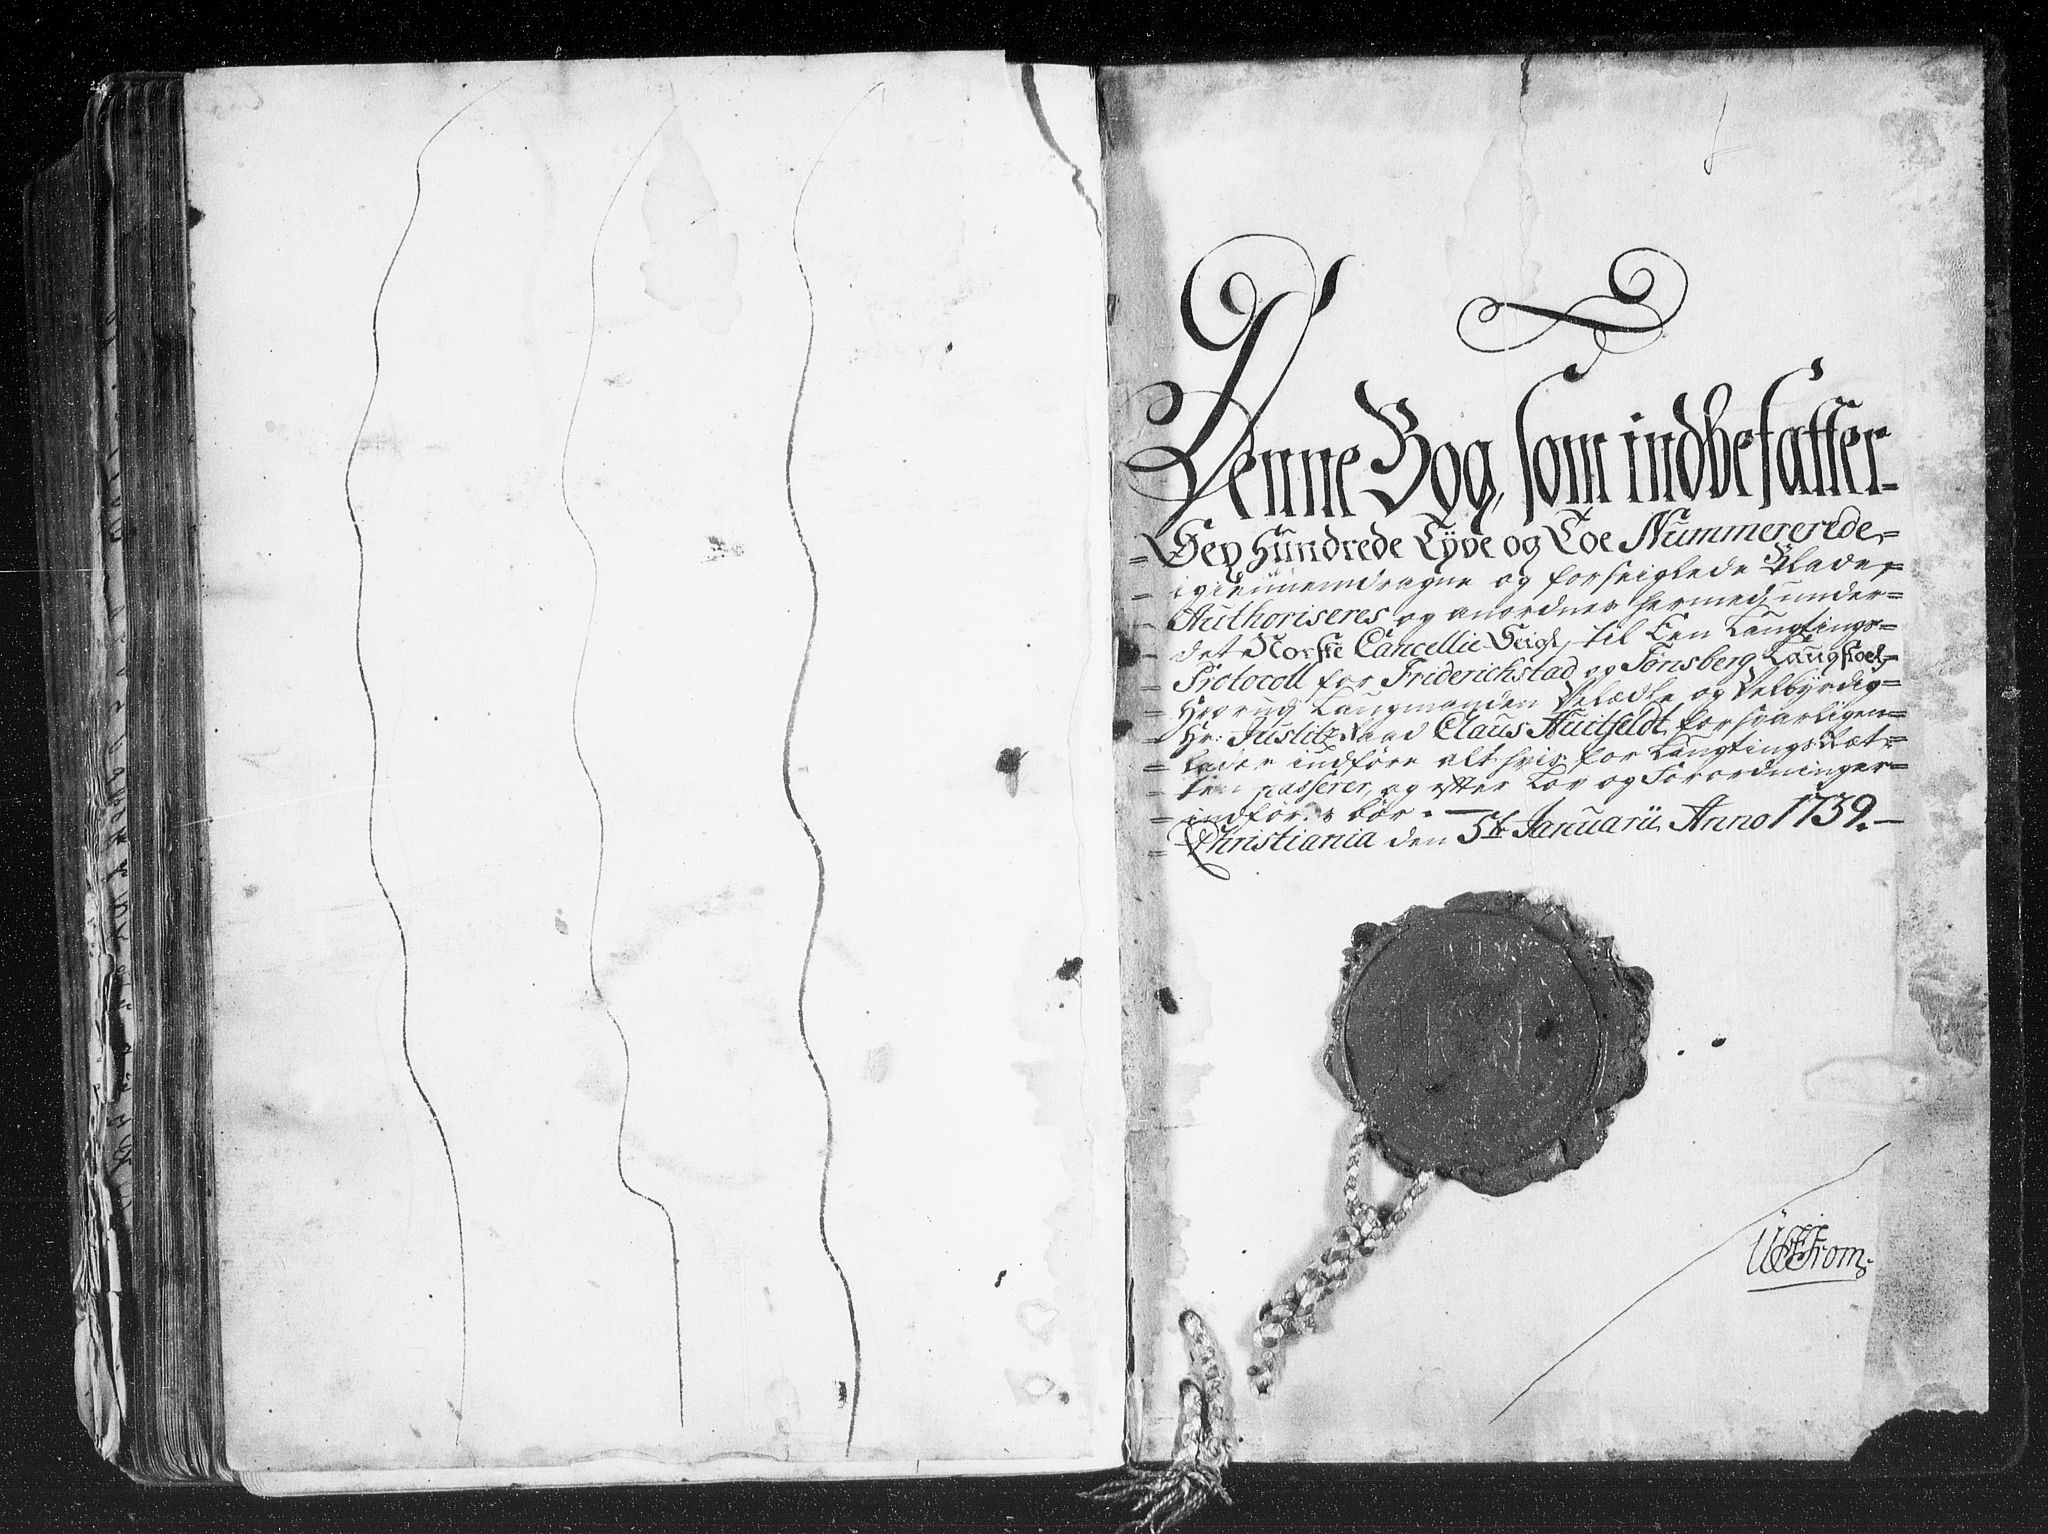 Denne Bog, som indbefatter-
= Sex Hundrede Tyve og Toe Nummererede,=
= igiennemdragne og forseiglede Blade,=
- Authoriseres og anordnes hermed, under=
- det Norske Cancellie-Seigl, til Een Laugtings=
= Protocoll for Friderichstad og Tønsberg Laugstoel,=
= Hvorudj Laugmanden Velædle og Velbyrdig=
= Hr: Justitz Raad Claus Huitfeldt, forsvarligen=
= lader indføre alt hvis for Laugtings Ræt=
= ten passerer, og efter Lov og Forordninger=
= indføres bør. —
= Christiania den 5te Januarii, Anno 1739.—
From